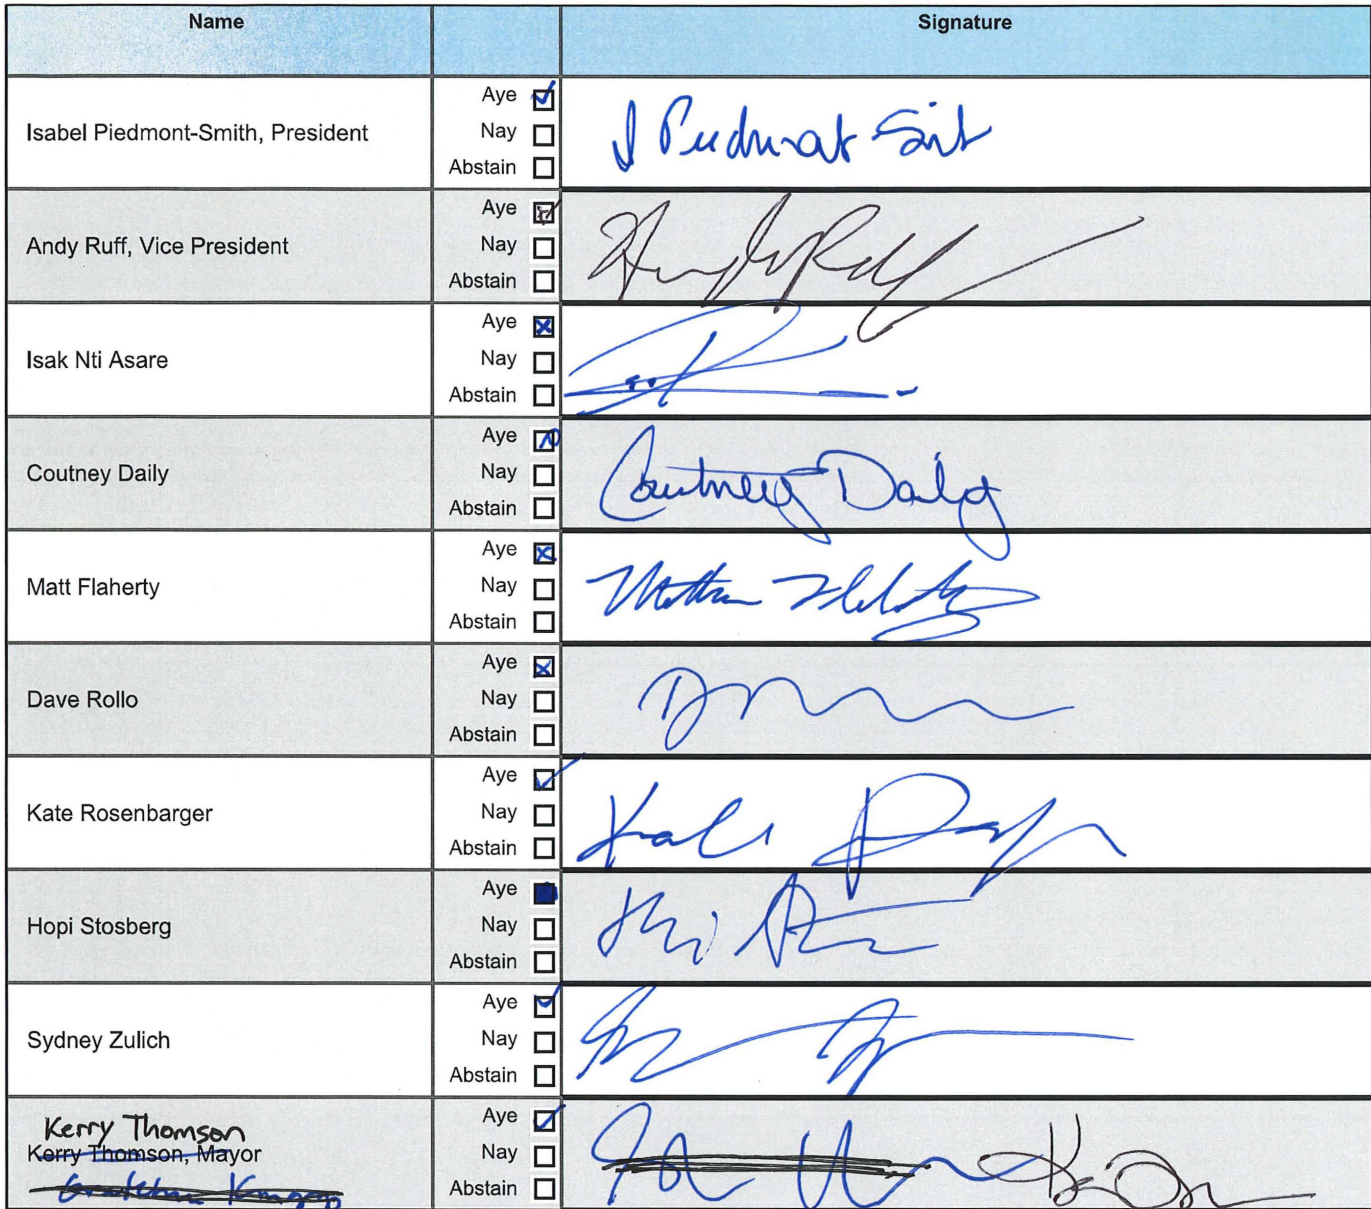 Name Signature
Isabel Piedmont-Smith, President
Aye
Nay
Abstain
Andy Ruff, Vice President
Aye
Nay
Abstain
Isak Nti Asare
Aye
Nay
Abstain
Coutney Daily
Aye
Nay
Abstain
Courtney Daily
Matt Flaherty
Aye
Nay
Abstain
Dave Rollo
Aye
Nay
Abstain
Kate Rosenbarger
Aye
Nay
Abstain
Hopi Stosberg
Aye
Nay
Abstain
Sydney Zulich
Aye
Nay
Abstain
Kerry Thomson
Kerry Thomson, Mayor
Aye
Nay
Abstain